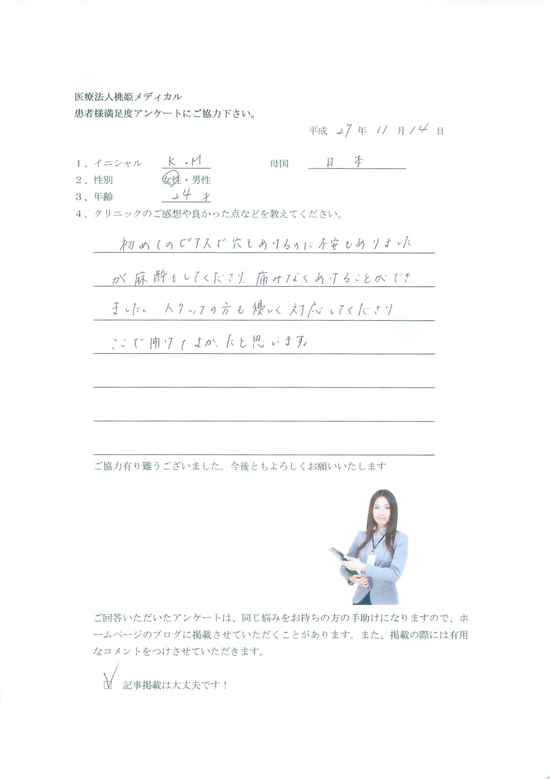 医療法人桃姫メディカル
患者様満足度アンケートにご協力下さい。
平成 27 年 11 月 14 日
1、イニシャル K.M 母国 日本
2、性別 女性・男性
3、年齢 24才
4、クリニックのご感想や良かった点などを教えてください。
初めてのピアスで穴をあけるのに不安もありました
が麻酔もしてくださり、痛みなくあけることができ
ました。スタッフの方も優しく対応してくださり
ここで開けてよかったと思います。
ご協力有り難うございました。今後ともよろしくお願いいたします
ご回答いただいたアンケートは、同じ悩みをお持ちの方の手助けになりますので、ホ
ームページのブログに掲載させていただくことがあります。また、掲載の際には有用
なコメントをつけさせていただきます。
☑ 記事掲載は大丈夫です！